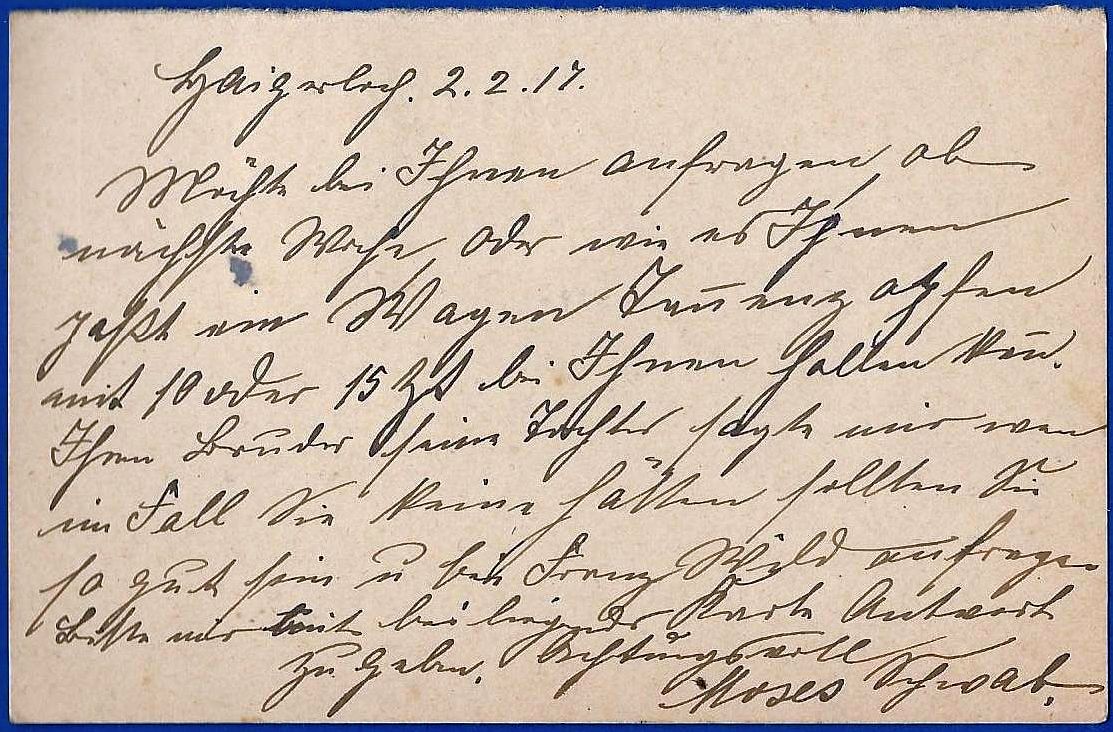 Haigerloch. 2.2.17.
Möchte bei Ihnen anfragen, ob
nächste Woche, oder wie es Ihnen
paßt ein Wagen Tannenzapfen
mit 10 oder 15 Zt bei Ihnen hollen kan.
Ihren Bruder seine Tochter sagte mir wen
im Fall Sie keine hätten sollten Sie
so gut sein u bei Franz Wild anfragen
Bitte mir mit beiliegender Karte Antwort
zu geben. Achtungsvoll
Moses Schwab.